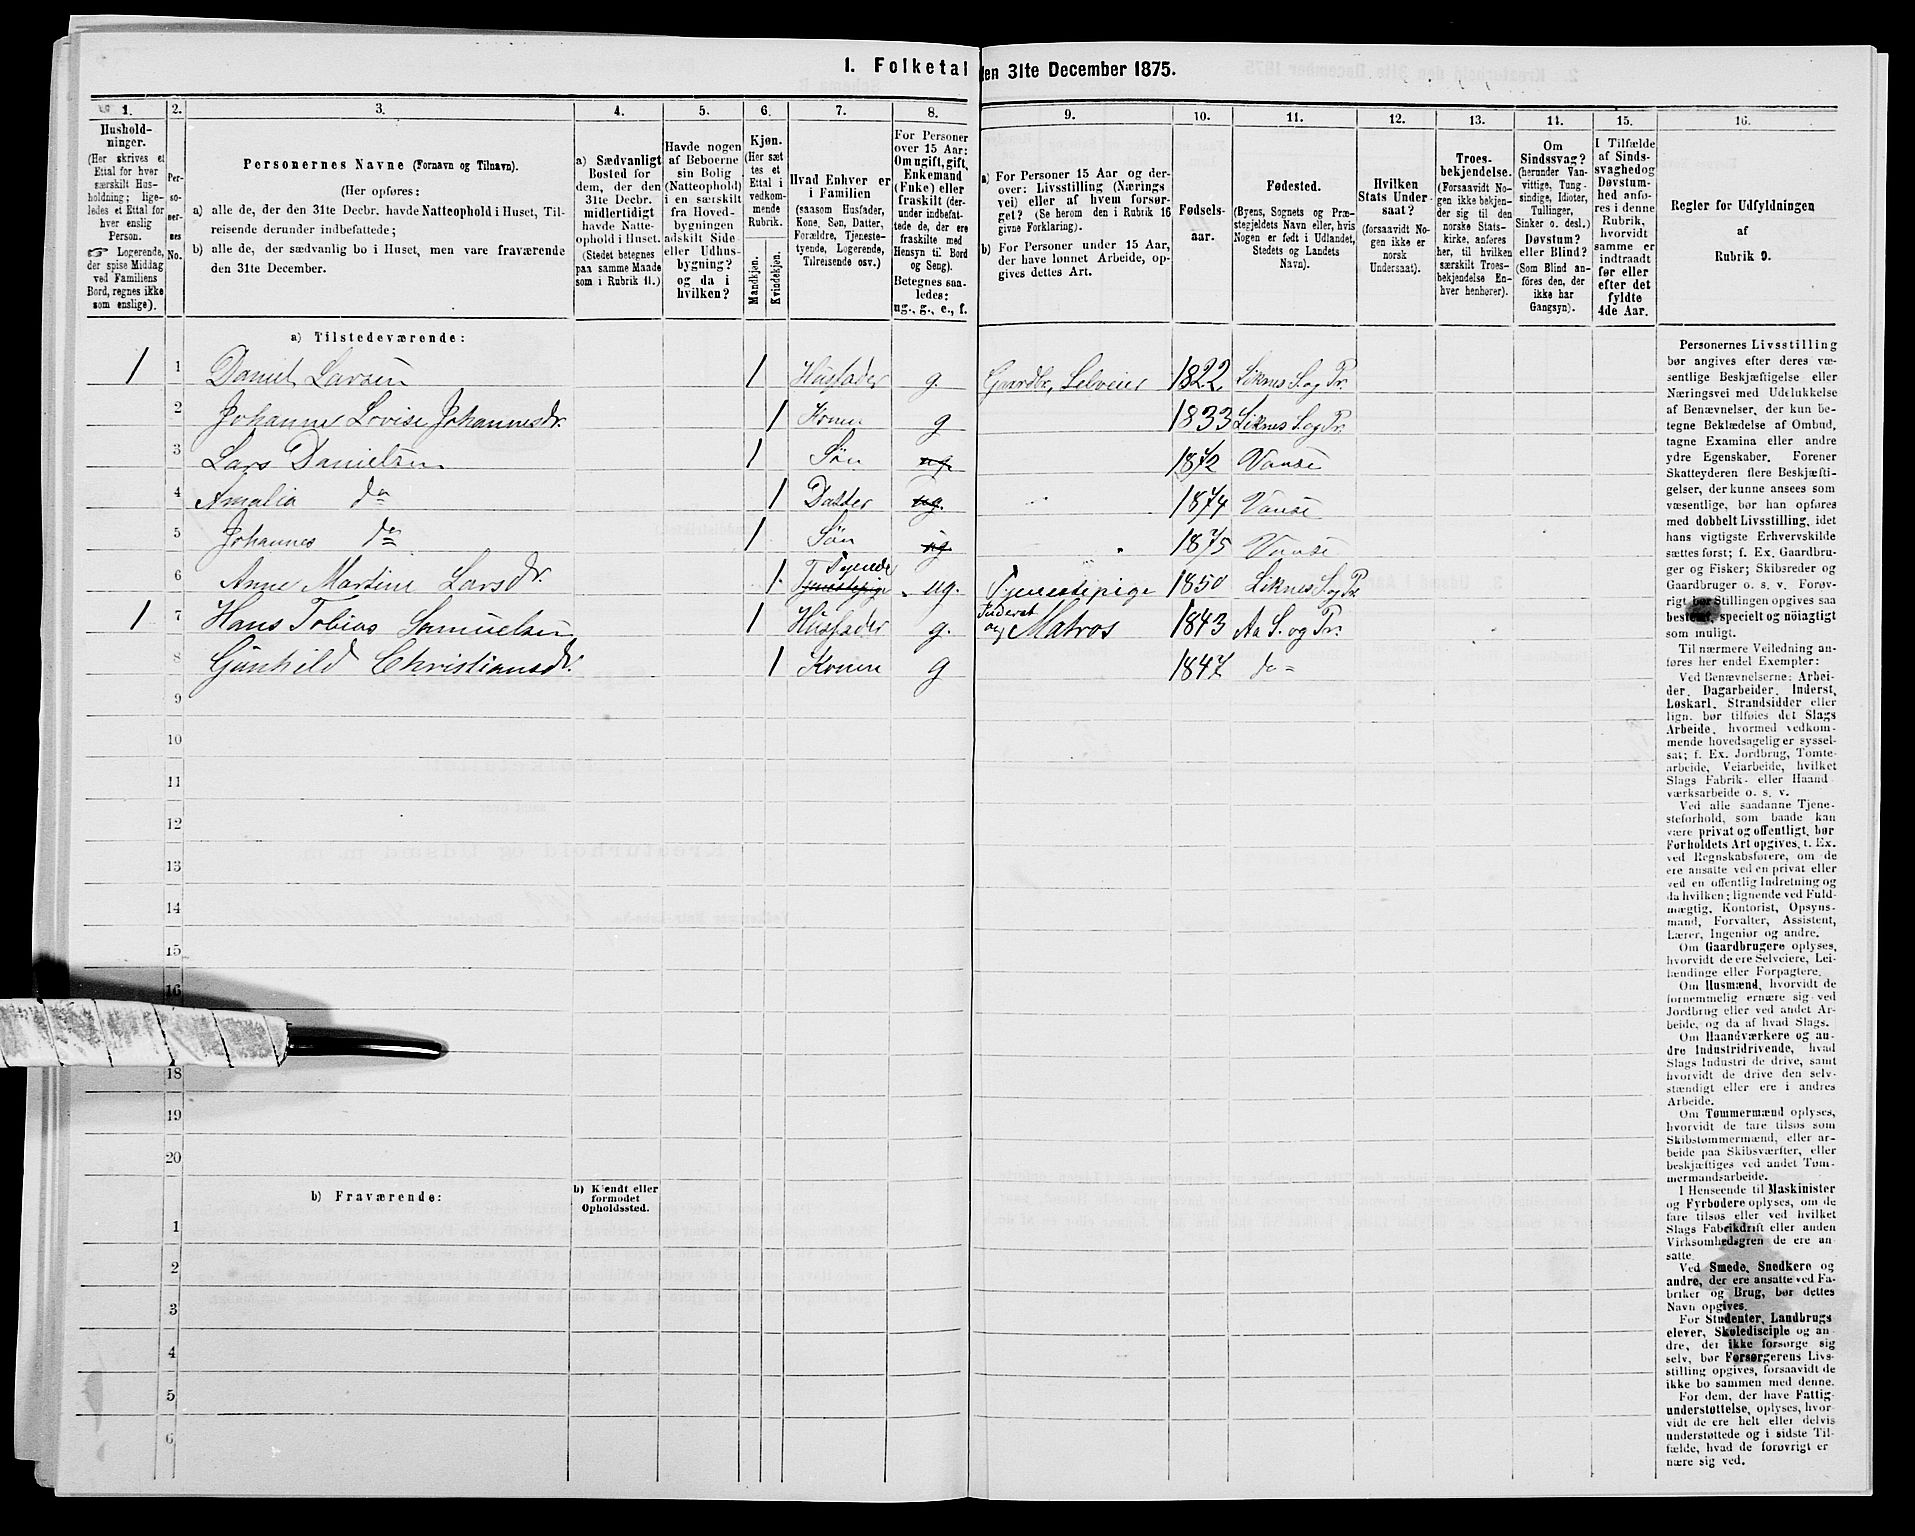 1. Folketal den 31te December 1875.
1.
2.
3.
4.
5.
6.
7.
8.
9.
10.
11.
12.
13.
14.
15.
16.
Hushold-
ninger.
(Her skrives et
Ettal for hver
særskilt Hus-
holdning; lige-
ledes et Ettal for
hver enslig
Person.
☞ Logerende,
der spise Middag
ved Familiens
Bord, regnes ikke
som enslige).
Per-
so-
ner-
nes
No.
Personernes Navne (Fornavn og Tilnavn).
(Her opføres:
a) alle de, der den 31te Decbr. havde Natteophold i Huset, Til-
reisende derunder indbefattede;
b) alle de, der sædvanlig bo i Huset, men vare fraværende
den 31te December.
a) Sædvanligt
Bosted for
dem, der den
31te Decbr.
midlertidigt
havde Natte-
ophold i Huset.
(Stedet betegnes
paa samme Maade
som i Rubrik 11.)
Havde nogen
af Beboerne
sin Bolig
(Natteophold)
i en særskilt
fra Hoved-
bygningen
adskilt Side-
eller Udhus-
bygning?
og da i
hvilken?
Kjøn.
(Her sæt-
tes et
Ettal i
vedkom-
mende
Rubrik.
Mandkjøn.
Kvindekjøn.
Hvad Enhver er
i Familien
(saasom Husfader,
Kone, Søn, Datter,
Forældre, Tjeneste-
tyende, Logerende,
Tilreisende osv.)
For Personer
over 15 Aar:
Om ugift, gift,
Enkemand
(Enke) eller
fraskilt (der-
under indbefat-
tede de, der ere
fraskilte med
Hensyn til Bord
og Seng).
Betegnes saa-
ledes:
ug., g., e., f.
a) For Personer 15 Aar og der-
over: Livsstilling (Nærings
vei) eller af hvem forsør-
get? (Se herom den i Rubrik 16
givne Forklaring).
b) For Personer under 15 Aar,
der have lønnet Arbeide, op-
gives dettes Art.
Fødsels-
aar.
Fødested.
(Byens, Sognets og Præ-
stegjeldets Navn eller, hvis
Nogen er født i Udlandet,
Stedets og Landets
Navn).
Hvilken
Stats Under-
saat?
(forsaavidt No-
gen ikke er
norsk
Undersaat).
Troes-
bekjendelse.
(Forsaavidt No-
gen ikke bekjen-
der sig til den
norske Stats-
kirke, anføres
her, til hvilken
særskilt Troes-
bekjendelse En-
hver henhører).
Om
Sindssvag?
(herunder Van-
vittige, Tung-
sindige, Idioter,
Tullinger,
Sinker o. desl.)
Døvstum?
eller Blind?
(Som Blind an-
føres den, der
ikke har
Gangsyn).
I Tilfælde
af Sinds-
svaghed og
Døvstum-
hed anfø-
res i denne
Rubrik,
hvorvidt
samme er
indtraadt
før eller
efter det
fyldte
4de Aar.
Regler for Udfyldningen
af
Rubrik 9.
a) Tilstedeværende:
1 1 Daniel Larsen 1 Husfader g Gaardbr, Selveier 1822 Liknes S. og Pr.
2 Johanne Lovise Johannesdr. 1 Konen g 1833 Liknes S. og Pr.
3 Lars Danielsen 1 Søn ug. 1872 Vanse
4 Amalia do 1 Datter ug. 1874 Vanse
5 Johannes do 1 Søn ug 1875 Vanse
Tyende
6 Anne Martine Larsdr. 1 Tjenestepige ug. Tjenestepige 1850 Liknes S. og Pr
Inderst
1 7 Hans Tobias Samuelsen 1 Husfader g. og Matros 1843 Aa S. og Pr.
8 Gunhild Christiansdr. 1 Konen g 1847 do
9
10
11
12
13
14
15
16
18
19
20
b) Fraværende:
b) Kjendt eller
formodet
Opholdssted.
1
2
3
4
5
6
Personernes Livsstilling
bør angives efter deres væ-
sentlige Beskjæftigelse eller
Næringsvei med Udelukkelse
af Benævnelser, der kun be-
tegne Beklædelse af Ombud,
tagne Examina eller andre
ydre Egenskaber. Forener
Skatteyderen flere Beskjæfti-
gelser, der kunne ansees som
væsentlige, bør han opføres
med dobbelt Livsstilling, idet
hans vigtigste Erhvervskilde
sættes først; f. Ex. Gaardbru-
ger og Fisker; Skibsreder og
Gaardbruger o. s. v. Forøv-
rigt bør Stillingen opgives saa
bestemt, specielt og nöiagtigt
som muligt.
Til nærmere Veiledning an-
føres her endel Exempler:
Ved Benævnelserne: Arbei-
der, Dagarbeider, Inderst,
Løskarl, Strandsidder eller
lign. bør tilføies det Slags
Arbeide, hvormed vedkom-
mende hovedsagelig er syssel-
sat; f. Ex. Jordbrug, Tomte-
arbeide, Veiarbeide, hvilket
Slags Fabrik- eller Haand-
værksarbeide o. s. v.
Ved alle saadanne Tjene-
steforhold, som baade kan
være privat og offentligt, bør
Forholdets Art opgives, f. Ex.
ved Regnskabsførere, om de
ere ansatte ved en privat eller
ved en offentlig Indretning og
da hvilken; lignende ved Fuld-
mægtig, Kontorist, Opsyns-
mand, Forvalter, Assistent,
Lærer, Ingeniør og andre.
Om Gaardbrugere oplyses,
hvorvidt de ere Selveiere, Lei-
lændinge eller Forpagtere.
Om Husmænd, hvorvidt de
fornemmelig ernære sig ved
Jordbrug eller ved andet Ar-
beide, og da af hvad Slags.
Om Haandværkere og an-
dre Industridrivende, hvad
Slags Industri de drive, samt
hvorvidt de drive den selv-
stændigt eller ere i andres
Arbeide.
Om Tømmermænd oplyses,
hvorvidt de fare tilsøs som
Skibstømmermænd, eller ar-
beide paa Skibsværfter, eller
beskjæftiges ved andet Tøm-
mermandsarbeide.
I Henseende til Maskinister
og Fyrbødere oplyses, om de
fare tilsøs eller ved hvilket
Slags Fabrikdrift eller anden
Virksomhedsgren de ere an-
satte.
Ved Smede, Snedkere og
andre, der ere ansatte ved Fa-
briker og Brug, bør dettes
Navn opgives.
For Studenter, Landbrugs-
elever, Skoledisciple og an-
dre, der ikke forsørge sig
selv, bør Forsørgerens Livs-
stilling opgives, forsaavidt de
ikke bo sammen med denne.
For dem, der have Fattig-
understøttelse, oplyses, hvor-
vidt de ere helt eller delvis
understøttede og i sidste Til-
fælde, hvad de forøvrigt er-
nære sig ved.